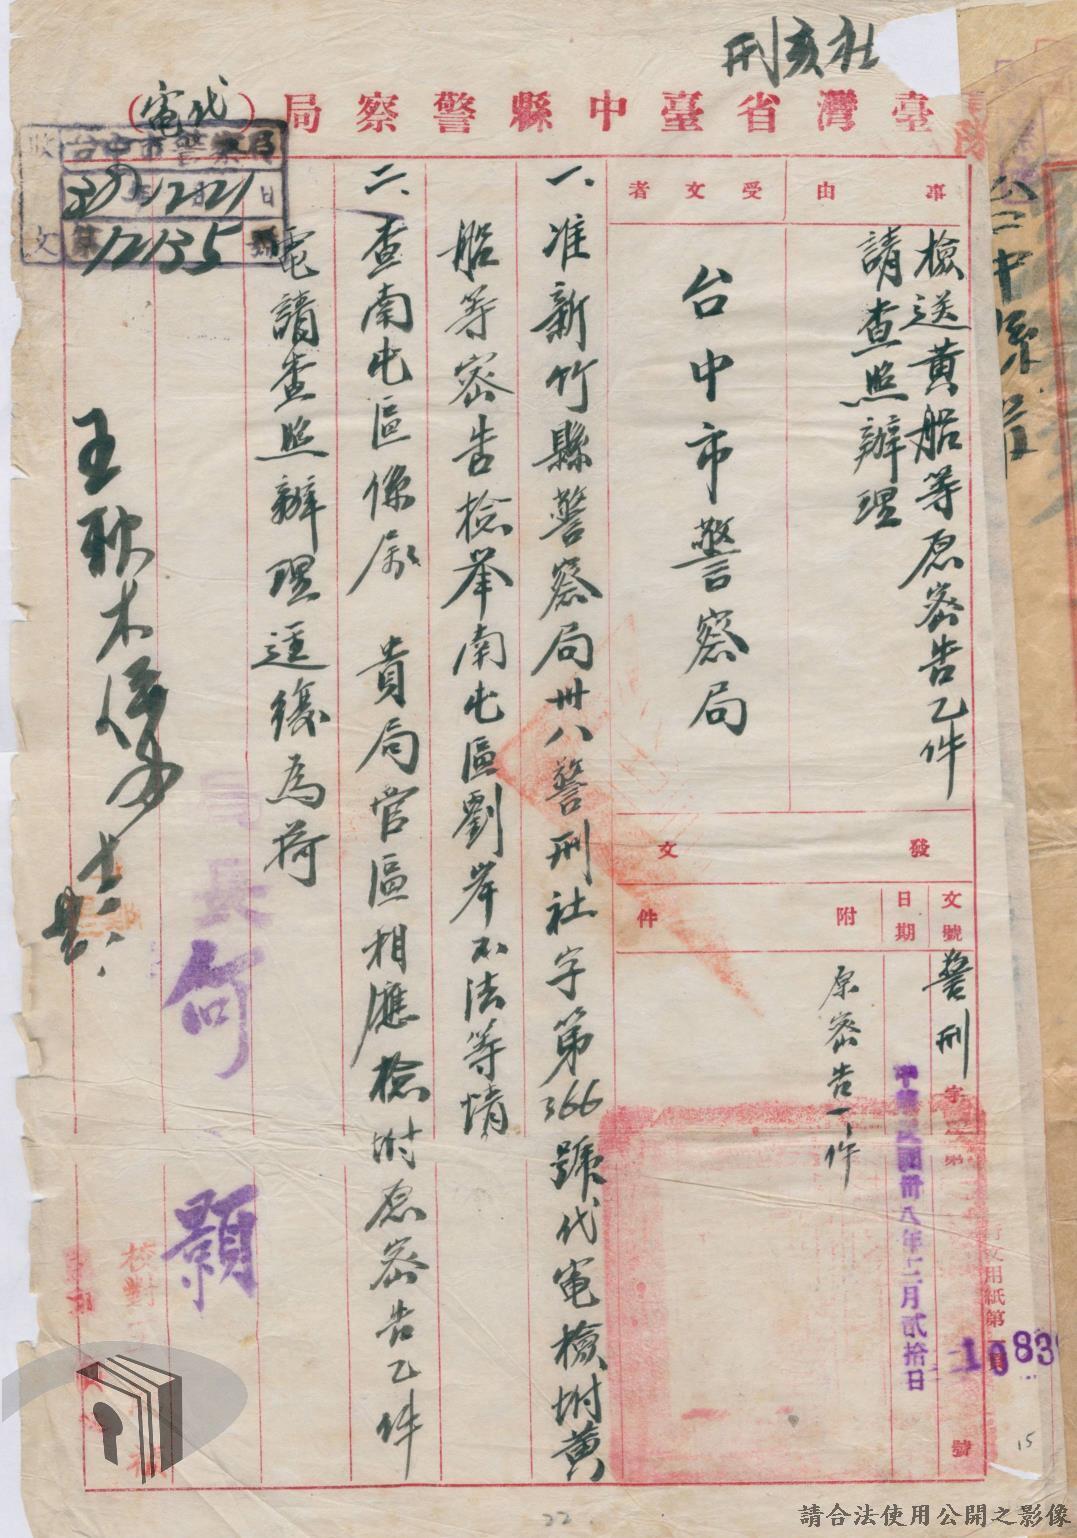 刑亥社
臺灣省臺中縣警察局（代電）
事由
檢送黃船等原密告乙件
請查照辦理
受文者
台中市警察局
發文
文號
警刑字第
號
日期
中華民國卅八年十二月貳拾日
附件
原密告一件
一、准新竹縣警察局卅八警刑社字第366號代電檢附黃
船等密告檢舉南屯區劉岸不法等情
二、查南屯區係屬 貴局管區相應檢附原密告乙件
電請查照辦理逕復為荷
局長何
顯
王耿木
校對
收文
台中市警察局
38 12 21日
第12135號
行文用紙第
1083
15
22
請合法使用公開之影像